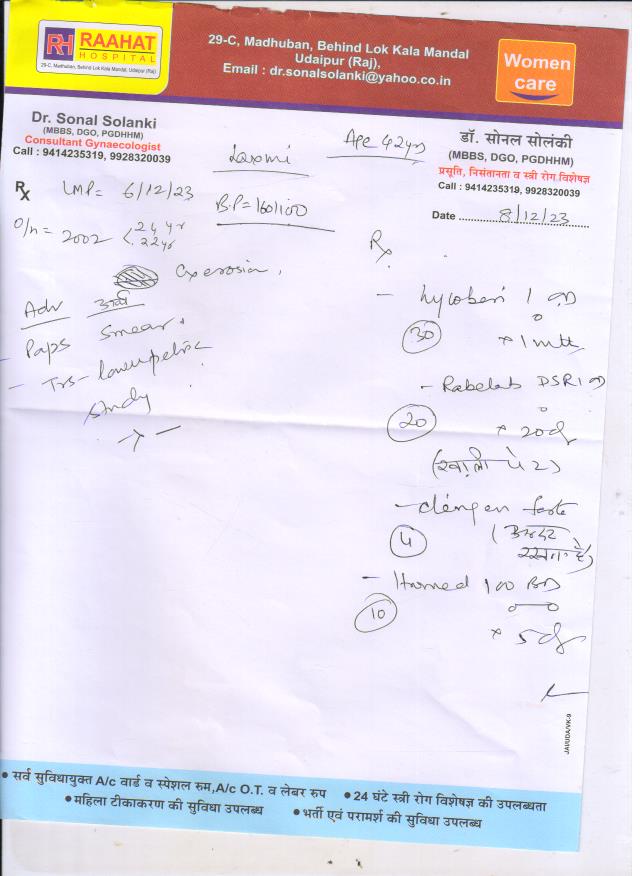 RH RAAHAT
HOSPITAL
29-C, Madhuban, Behind Lok Kala Mandal, Udaipur (Raj)
29-C, Madhuban, Behind Lok Kala Mandal
Udaipur (Raj),
Email : dr.sonalsolanki@yahoo.co.in
Women
care
Dr. Sonal Solanki
(MBBS, DGO, PGDHHM)
Consultant Gynaecologist
Call : 9414235319, 9928320039
डॉ. सोनल सोलंकी
(MBBS, DGO, PGDHHM)
प्रसूति, निसंतानता व स्त्री रोग विशेषज्ञ
Call : 9414235319, 9928320039
Date 8/12/23
Laxmi Age 42yr
Rx LMP= 6/12/23
B.P=160/100
O/n= 2002 < 24 yr
22yr
Cx erosion,
Adv
Paps smear
- Tvs- lower pelvic
study
Rx
- Lycoberi 1 OD
30 x 1 mth
- Rabelab DSR 1 OD
20 x 20d
(खाली पेट)
- clingen forte
4 (अन्दर
रखना है)
- 100 BD
10 x 5d
JAI/UDA/VK-9
• सर्व सुविधायुक्त A/c वार्ड व स्पेशल रुम,A/c O.T. व लेबर रुप • 24 घंटे स्त्री रोग विशेषज्ञ की उपलब्धता
• महिला टीकाकरण की सुविधा उपलब्ध • भर्ती एवं परामर्श की सुविधा उपलब्ध